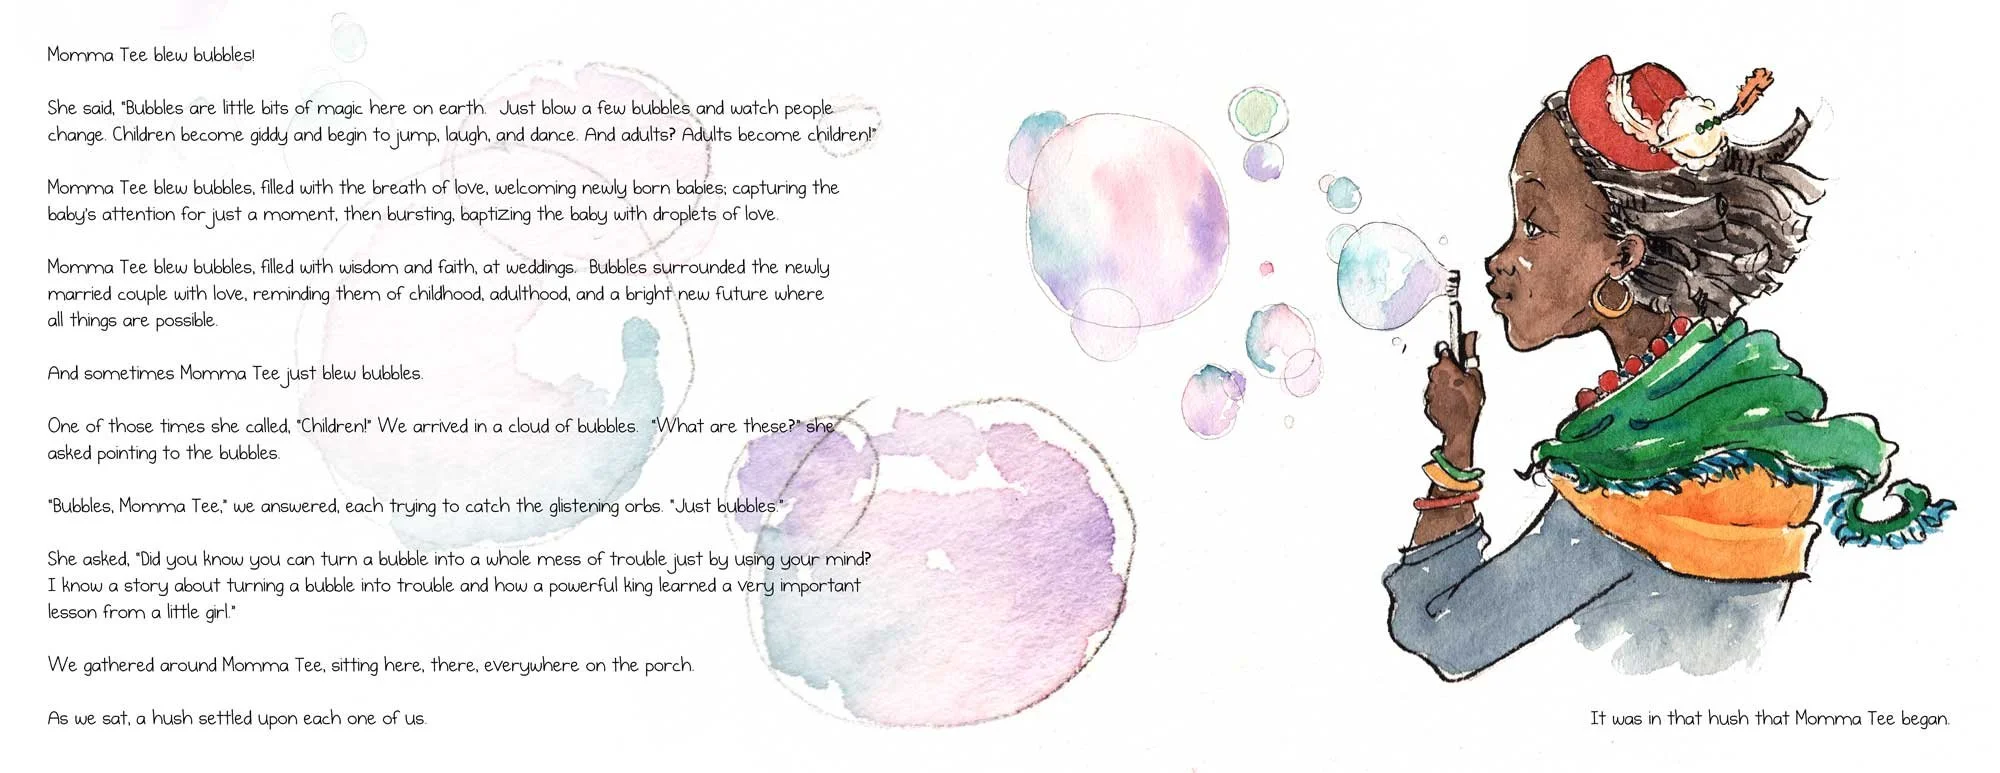 Momma Tee blew bubbles!
She said, "Bubbles are little bits of magic here on earth.  Just blow a few bubbles and watch people
change. Children become giddy and begin to jump, laugh, and dance. And adults? Adults become children!"
Momma Tee blew bubbles, filled with the breath of love, welcoming newly born babies; capturing the
baby's attention for just a moment, then bursting, baptizing the baby with droplets of love.
Momma Tee blew bubbles, filled with wisdom and faith, at weddings.  Bubbles surrounded the newly
married couple with love, reminding them of childhood, adulthood, and a bright new future where
all things are possible.
And sometimes Momma Tee just blew bubbles.
One of those times she called, "Children!" We arrived in a cloud of bubbles.  "What are these?" she
asked pointing to the bubbles.
"Bubbles, Momma Tee," we answered, each trying to catch the glistening orbs. "Just bubbles."
She asked, "Did you know you can turn a bubble into a whole mess of trouble just by using your mind?
I know a story about turning a bubble into trouble and how a powerful king learned a very important
lesson from a little girl."
We gathered around Momma Tee, sitting here, there, everywhere on the porch.
As we sat, a hush settled upon each one of us.
It was in that hush that Momma Tee began.